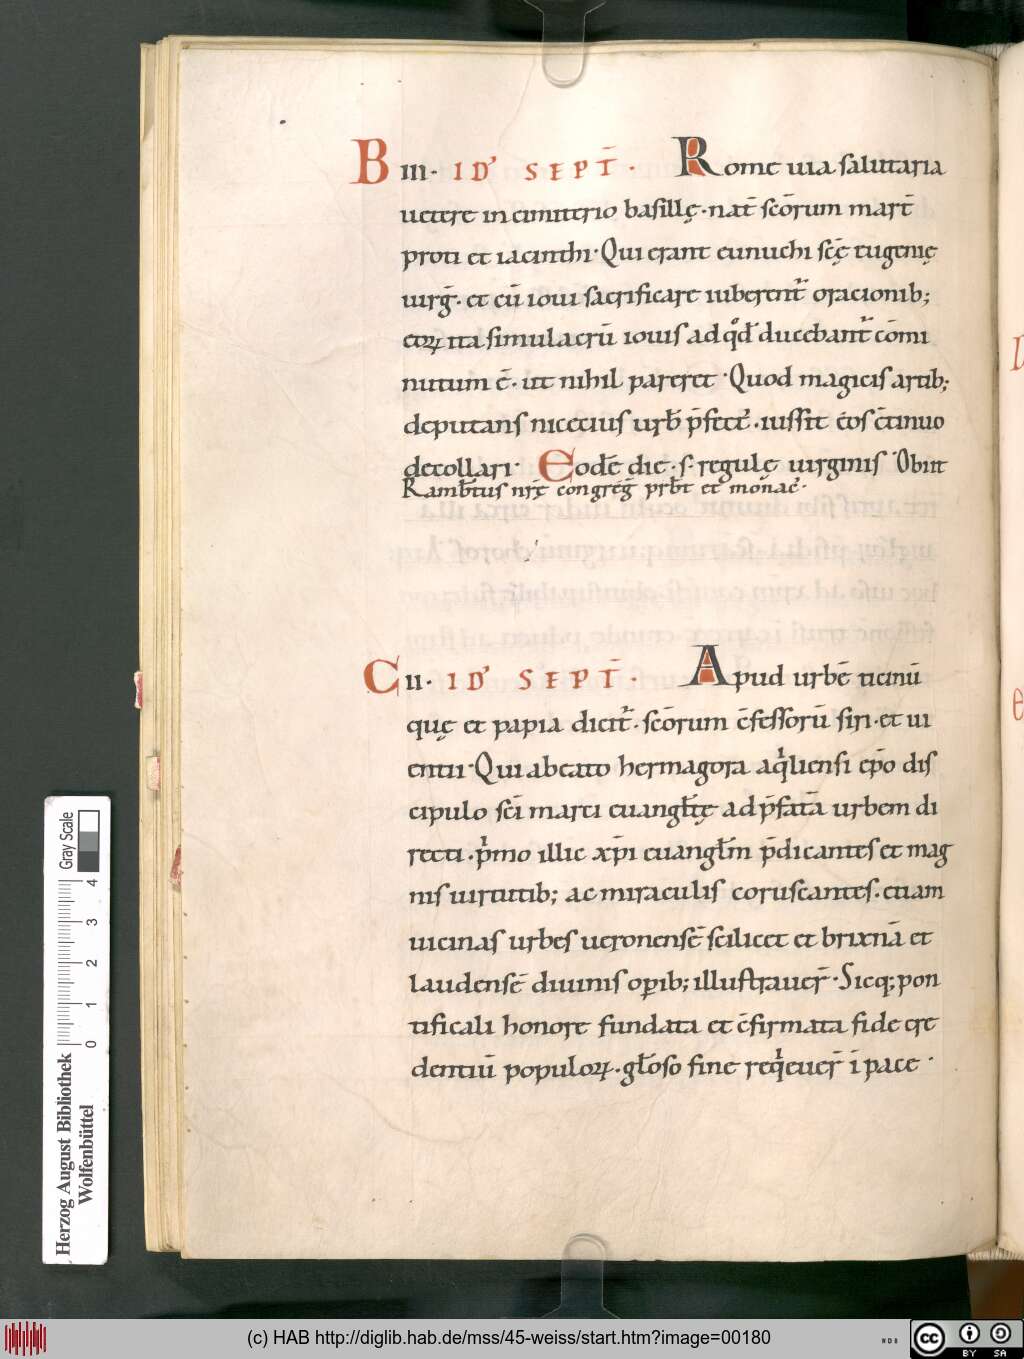 B III· ID' SEPT̄· Rome uia salutaria
uetere in cimiterio basillę·nat̄ scōrum mart̄
proti et iacinthi·Qui erant eunuchi sc̄ę eugenię
uirḡ·et cū ioui sacrificare iuberent᷑ oracionib;
eoꝝ ita simulacrū iouis ad qͦd ducebant᷑ cōmi
nutum ē·ut nihil pareret·Quod magicis artib;
deputans nicecius urb̄ p̄fect᷑·iussit eos c̄tinuo
decollari· Eodē die·s·regulę uirginis·Obiit
Rambtus nrę̄ congreḡ prbt̄ et monac̄·
C II· ID' SEPT̄· Apud urbē ticinū
quę et papia dicit᷑·scōrum c̄fessorū siri·et iu
entii·Qui a beato hermagora aqͥliensi ep̄o dis
cipulo sc̄i marci euangl̄tę ad p̄fatā urbem di
recti·pͥmo illic xp̄i euangl̄m p̄dicantes et mag
nis uirtutib; ac miraculis coruscantes·etiam
uicinas urbes ueronensē scilicet et brixnā et
laudensē diuinis oꝑib; illustrauer̄·Sicq; pon
tificali honore fundata et c̄firmata fide cre
dentiū populoꝝ·gl̄oso fine reqͥeuer̄ ī pace·
Herzog August Bibliothek
Wolfenbüttel
0 1 2 3 4
Gray Scale
(c) HAB http://diglib.hab.de/mss/45-weiss/start.htm?image=00180
cc BY SA